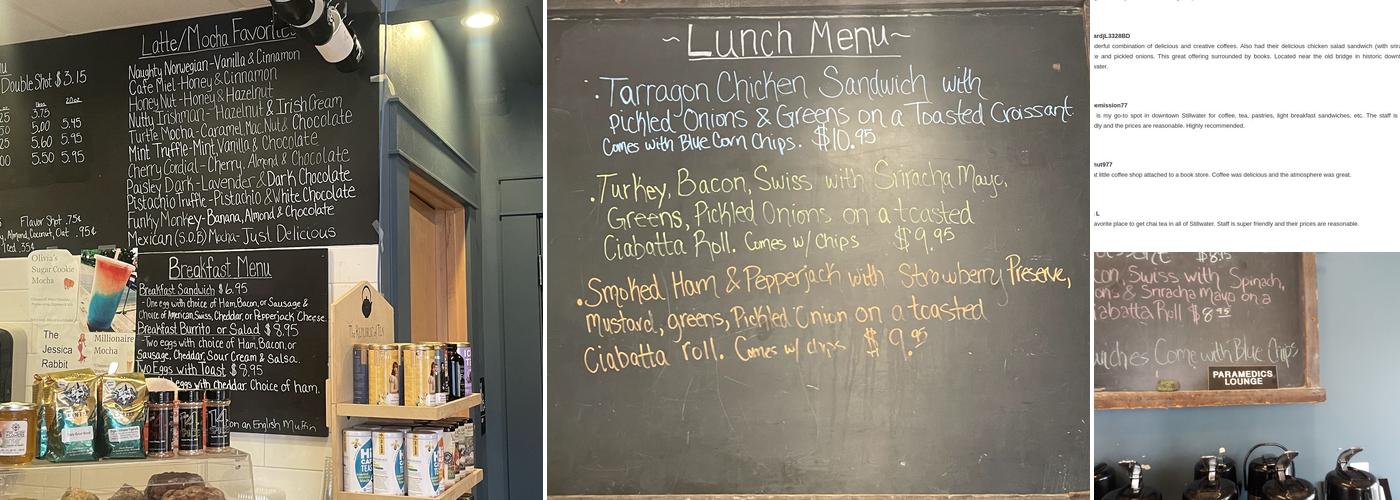 Latte/Mocha Favorites
Naughty Norwegian-Vanilla & Cinnamon
Cafe Miel-Honey & Cinnamon
Honey Nut-Honey & Hazelnut
Nutty Irishman-Hazelnut & Irish Cream
Turtle Mocha-Caramel, Mac Nut & Chocolate
Mint Truffle-Mint Vanilla & Chocolate
Cherry Cordial-Cherry, Almond & Chocolate
Paisley Dark-Lavender & Dark Chocolate
Pistachio Truffle-Pistachio & White Chocolate
Funky Monkey-Banana, Almond & Chocolate
Mexican (S.O.B) Mocha-Just Delicious
Double Shot $3.15
3.75
5.00 5.45
5.60 5.95
5.50 5.95
Flavor Shot .75¢
Almond, Coconut, Oat .95¢
Iced .35¢
Olivia's
Sugar Cookie
Mocha
The
Jessica
Rabbit
Millionaire
Mocha
Breakfast Menu
Breakfast Sandwich $6.95
-One egg with choice of Ham, Bacon, or Sausage &
Choice of American, Swiss, Cheddar, or Pepperjack Cheese.
Breakfast Burrito or Salad $8.95
-Two eggs with choice of Ham, Bacon, or
Sausage, Cheddar, Sour Cream & Salsa.
Two Eggs with Toast $8.95
eggs with cheddar Choice of ham,
on an English Muffin
~Lunch Menu~
.Tarragon Chicken Sandwich with
pickled Onions & Greens on a Toasted Croissant.
Comes with Blue Corn Chips. $10.95
.Turkey, Bacon, Swiss with Sriracha Mayo,
Greens, Pickled Onions on a toasted
Ciabatta Roll. Comes w/ Chips $9.95
.Smoked Ham & Pepperjack with Strawberry Preserve,
mustard, greens, Pickled Onion on a toasted
Ciabatta roll. Comes w/ chips $9.95
ardjL3328BD
derful combination of delicious and creative coffees. Also had their delicious chicken salad sandwich (with
and pickled onions. This great offering surrounded by books. Located near the old bridge in historic
water.
emission77
is my go-to spot in downtown Stillwater for coffee, tea, pastries, light breakfast sandwiches, etc. The staff is
dly and the prices are reasonable. Highly recommended.
nut977
t little coffee shop attached to a book store. Coffee was delicious and the atmosphere was great.
L
avorite place to get chai tea in all of Stillwater. Staff is super friendly and their prices are reasonable.
$8.95
con, Swiss with Spinach,
ons & Sriracha Mayo on a
iabatta Roll $8.95
Come with Blue Chips
PARAMEDICS
LOUNGE